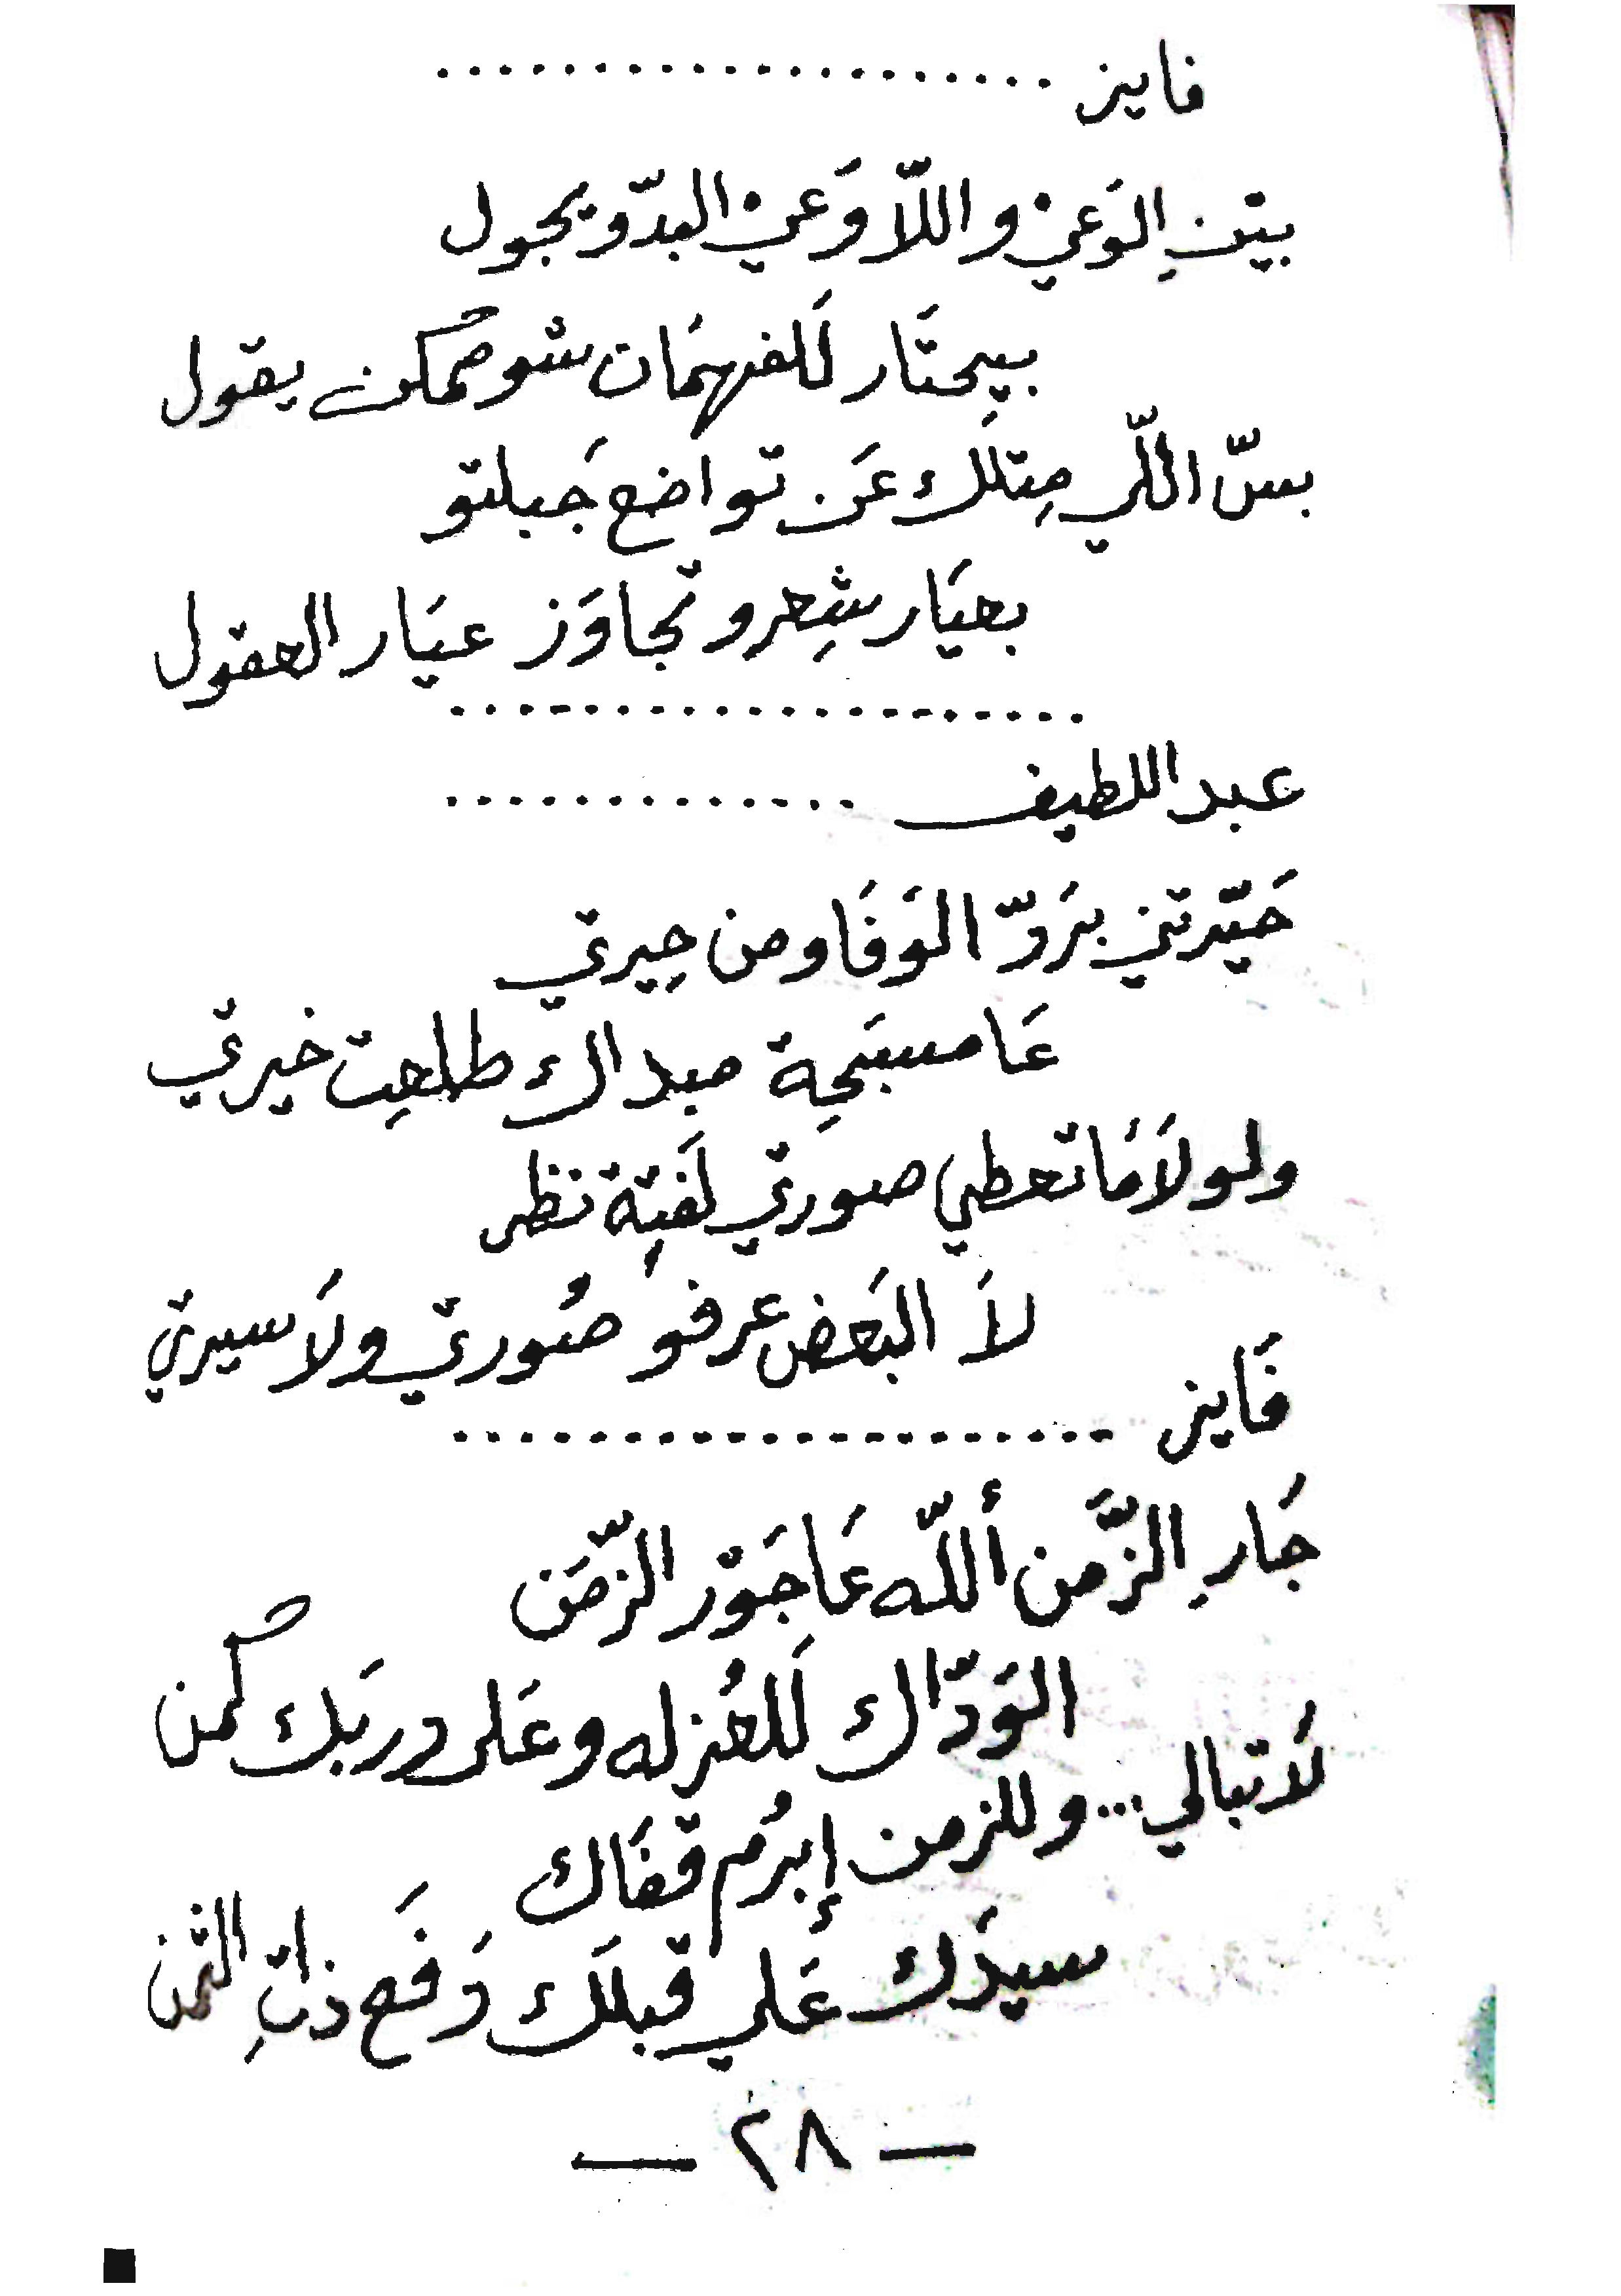 فايز ....................
بيْن الوَعيْ و اللّاوَعيْ البدّو يجول
بيِحتَار لَلفهمَان شو ممكن يقول
بسّ اللّي مِتلَك عَن تواضع جَبلتو
بعيَار شِعرو تجاوَز عيَار العقول
....................
عبد اللطيف .............
حَيّرتني بزَودّ الوَفَا ومن حِيرتي
عَا مسبَحِة مبداك طلعِت خيرتي
ولولاَ مَا تعطي صورتي لَفتِة نظر
لاَ البَعض عرفوَ صُورتي ولاَ سيرتي
فَايز ....................
جَارِ الزَّمن أللّه عَا جَوْر الزّمَن
الوَدّاك لَلعُزله وعَلى دربَك كَمن
لاَ تبالي... وللزمن إبرُم قفَاك
سيدَك عَلي قبلَك دَفَع ذاتِ التمن
— ٢٨ —